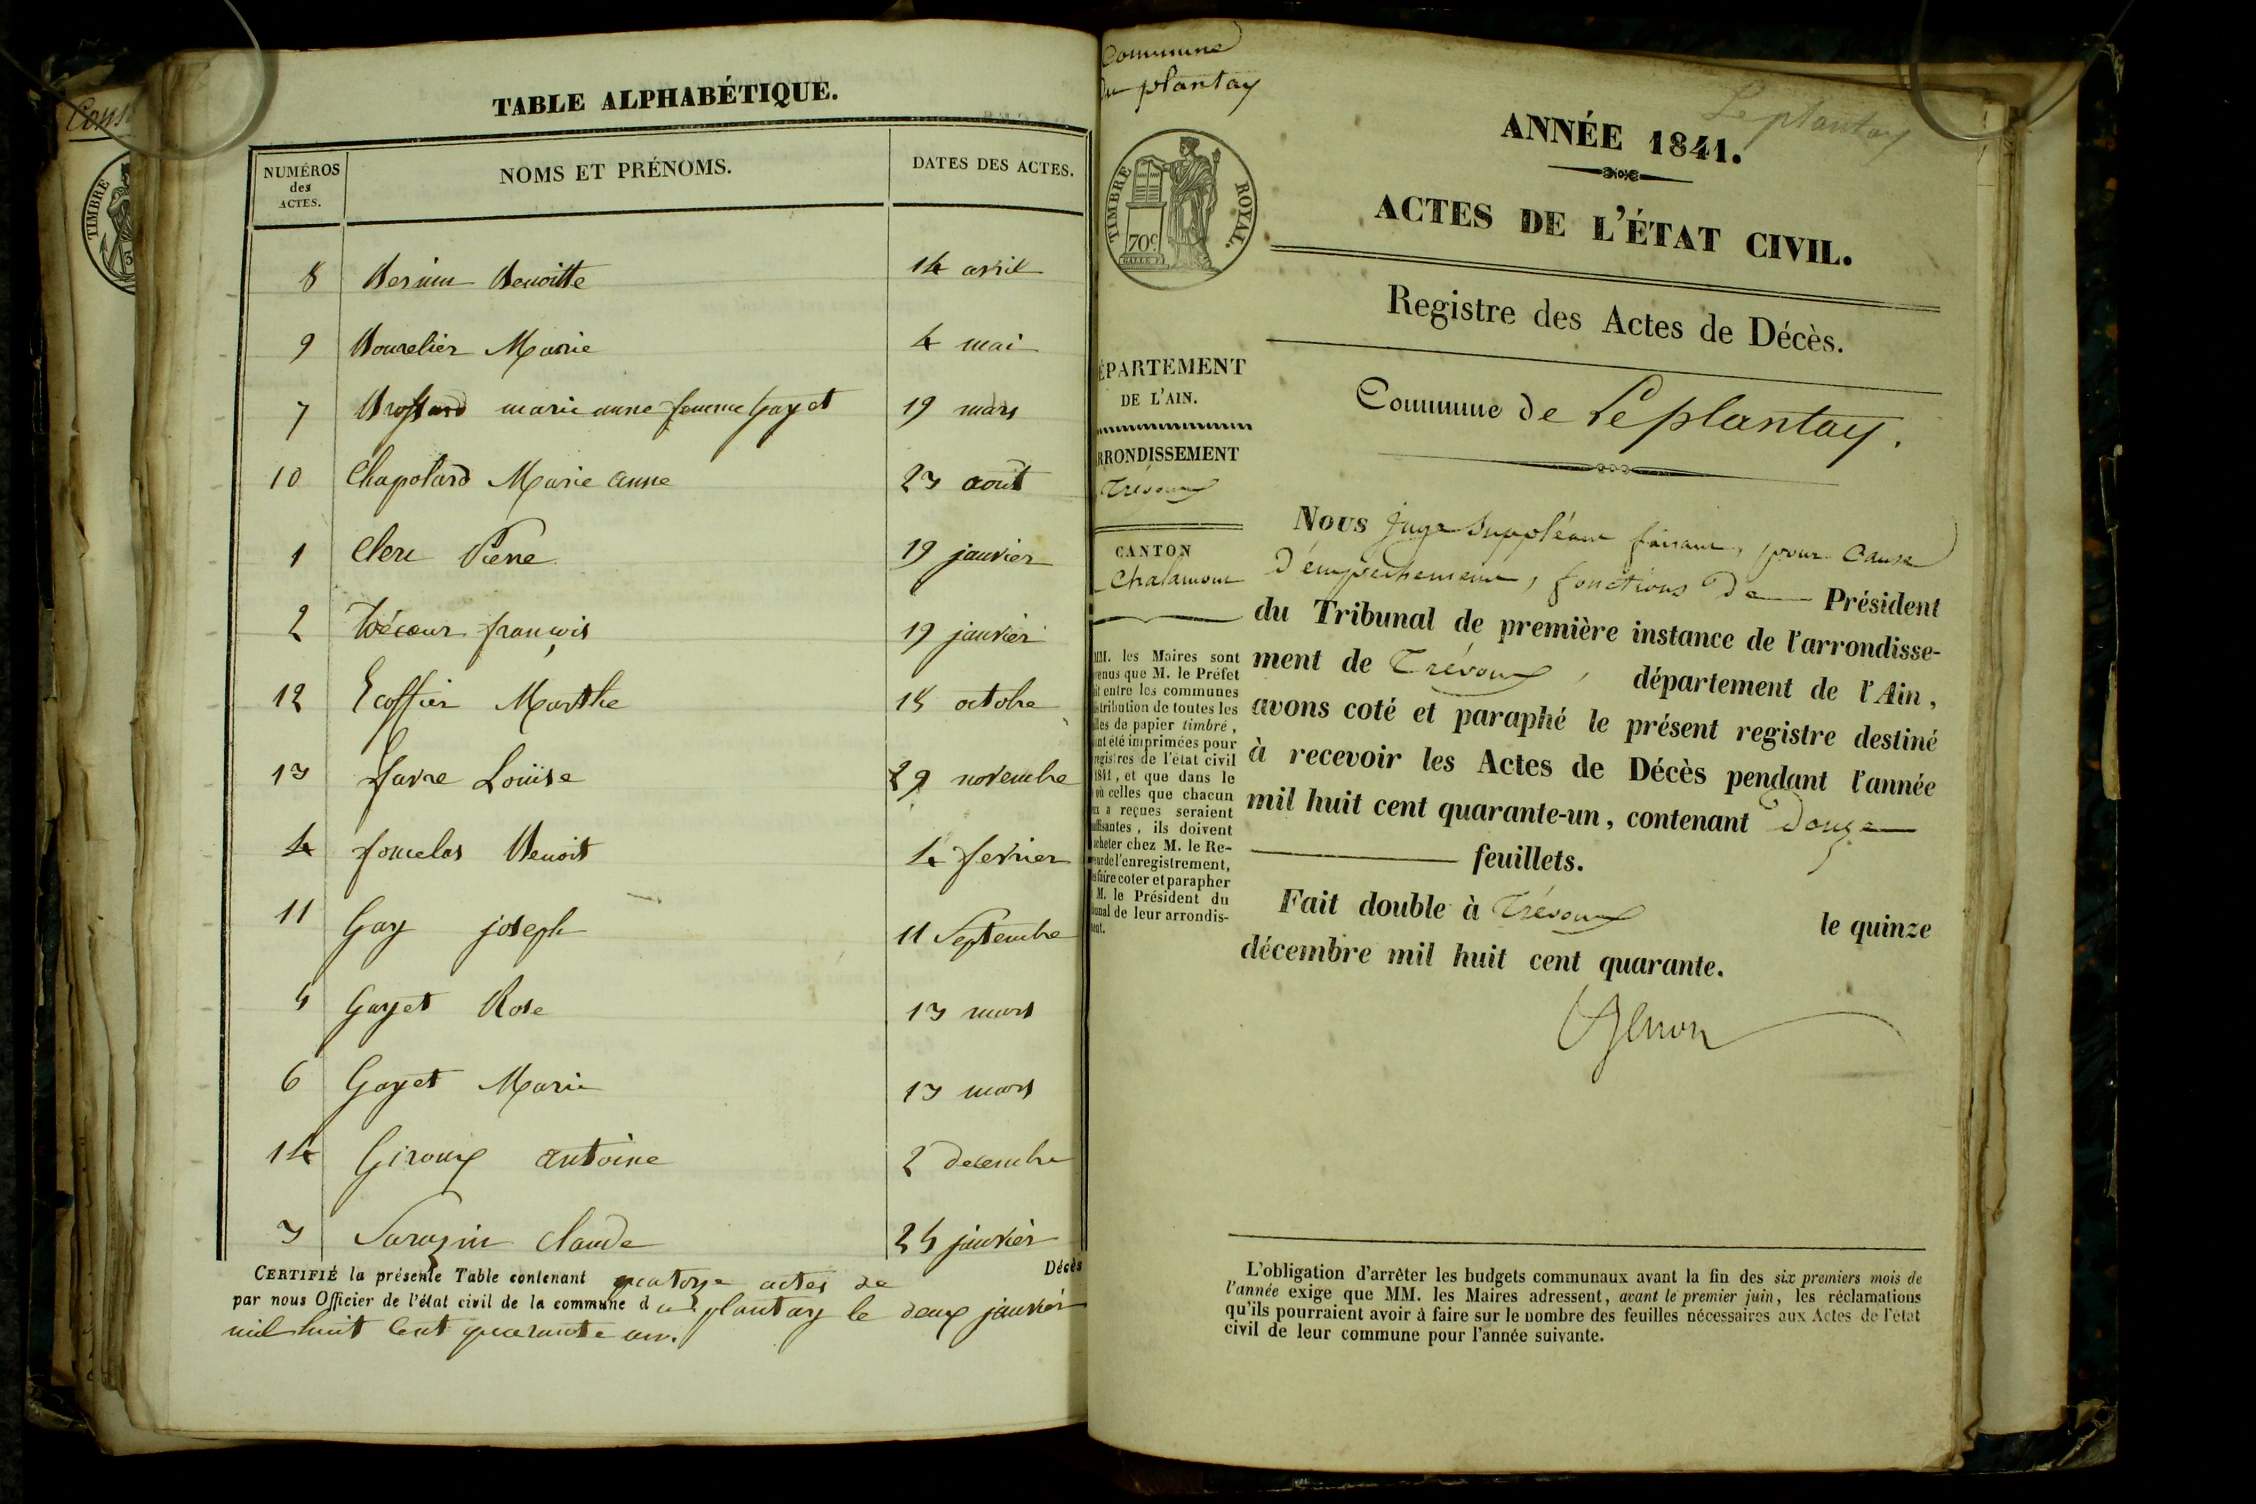 Cons
TIMBRE
3
TABLE ALPHABÉTIQUE.
NUMÉROS des ACTES. NOMS ET PRÉNOMS. DATES DES ACTES.
8 Benoitte 14 avril
9 Bourelier Marie 4 mai
7 Brossard marie anne femme Gayet 19 mars
10 Chapolard Marie anne 23 août
1 Clerc Pierre 19 janvier
2 Décoeur françois 19 janvier
12 Ecoffier Marthe 18 octobre
13 favre Louise 29 novembre
4 Benoit 4 fevrier
11 Gay joseph 11 Septembre
5 Gayet Rose 13 mars
6 Gayet Marie 13 mars
14 Giroux antoine 2 decembre
3 Sarazin claude 25 janvier
CERTIFIÉ la présente Table contenant quatorze actes de Décès
par nous Officier de l'état civil de la commune du plantay le deux janvier
mil huit cent quarante un.
Commune
Du plantay
TIMBRE ROYAL.
70c
Le plantay
ANNÉE 1841.
ACTES DE L'ÉTAT CIVIL.
Registre des Actes de Décès.
Commune de Le plantay.
ÉPARTEMENT
DE L'AIN.
RRONDISSEMENT
Trévoux
CANTON
Chalamont
MM. les Maires sont
venus que M. le Préfet
ait entre les communes
stribution de toutes les
lles de papier timbré,
ant été imprimées pour
registres de l'état civil
1841, et que dans le
où celles que chacun
ux a reçues seraient
uffisantes, ils doivent
acheter chez M. le Re-
veur de l'enregistrement,
es faire coter et parapher
M. le Président du
bunal de leur arrondis-
ment.
Nous Juge Suppléant faisant, pour cause
D'empêchement, fonctions de Président
du Tribunal de première instance de l'arrondisse-
ment de Trévoux, département de l'Ain,
avons coté et paraphé le présent registre destiné
à recevoir les Actes de Décès pendant l'année
mil huit cent quarante-un, contenant Douze
feuillets.
Fait double à Trévoux le quinze
décembre mil huit cent quarante.
L'obligation d'arrêter les budgets communaux avant la fin des six premiers mois de
l'année exige que MM. les Maires adressent, avant le premier juin, les réclamations
qu'ils pourraient avoir à faire sur le nombre des feuilles nécessaires aux Actes de l'état
civil de leur commune pour l'année suivante.